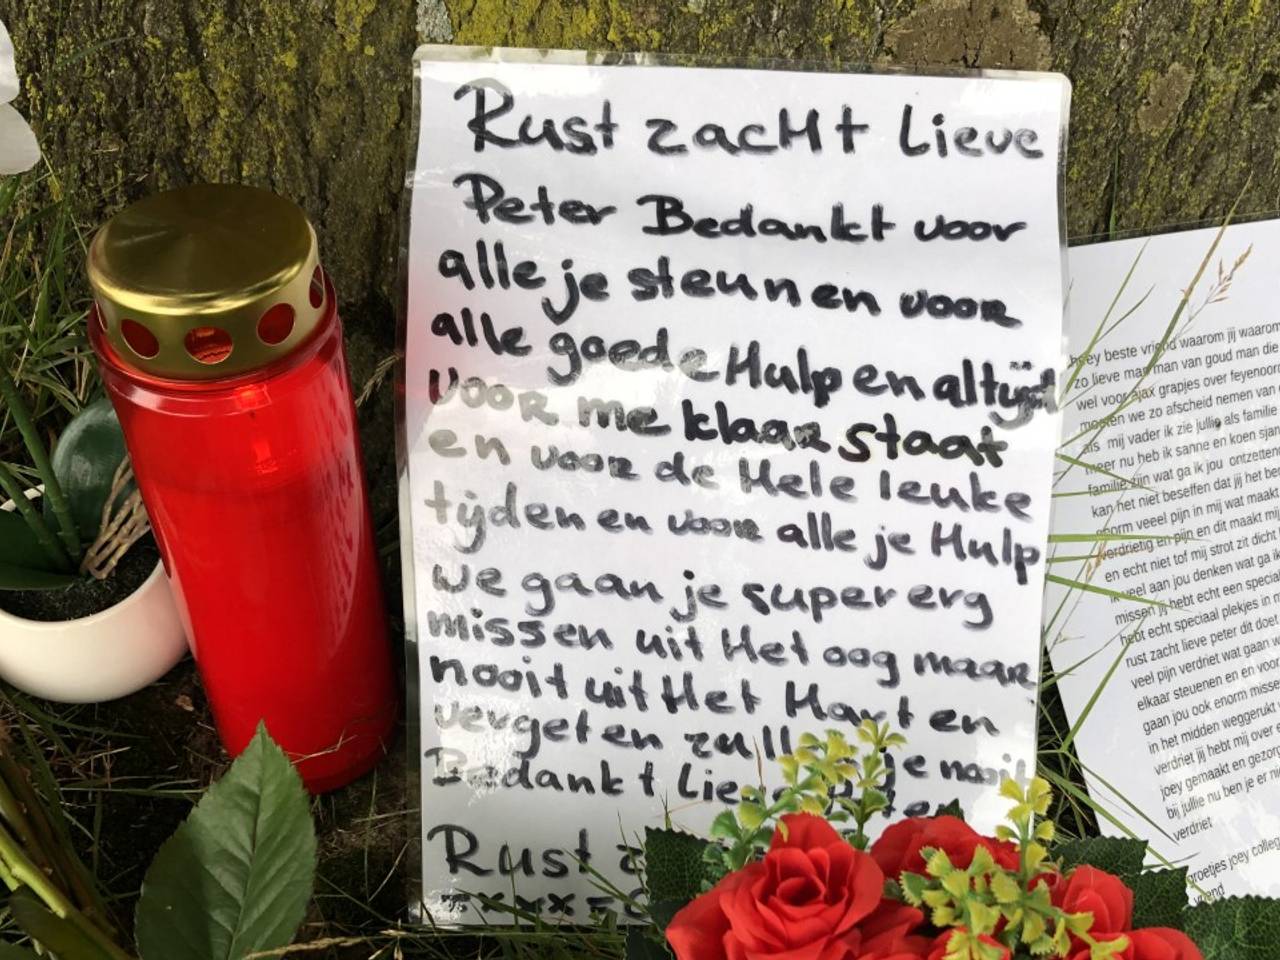 Rust zacHt Lieve
Peter Bedankt voor
alle je steun en voor
alle goede Hulp en altijd
voor me klaar staat
en voor de Hele leuke
tijden en voor alle je Hulp
we gaan je super erg
missen uit Het oog maar
nooit uit Het Hart en
vergeten zull je nooit
Bedankt
Rust
hey beste vriend waarom jij waarom
zo lieve man man van goud man die
wel voor ajax grapjes over feyenoord
moeten we zo afscheid nemen van
als mij vader ik zie jullie als familie
meer nu heb ik sanne en koen sjan
familie zijn wat ga ik jou ontzetten
kan het niet beseffen dat jij het be
enorm veeel pijn in mij wat maakt
verdrietig en pijn en dit maakt mij
en echt niet tof mij strot zit dicht
ik veel aan jou denken wat ga ik
missen jij hebt echt een special
hebt echt speciaal plekjes in m
rust zacht lieve peter dit doet
veel pijn verdriet wat gaan
elkaar steuenen en en voor
gaan jou ook enorm misse
in het midden weggerukt
verdriet jij hebt mij over
joey gemaakt en gezor
bij jullie nu ben je er ni
verdriet
groetjes joey colleg
vriend